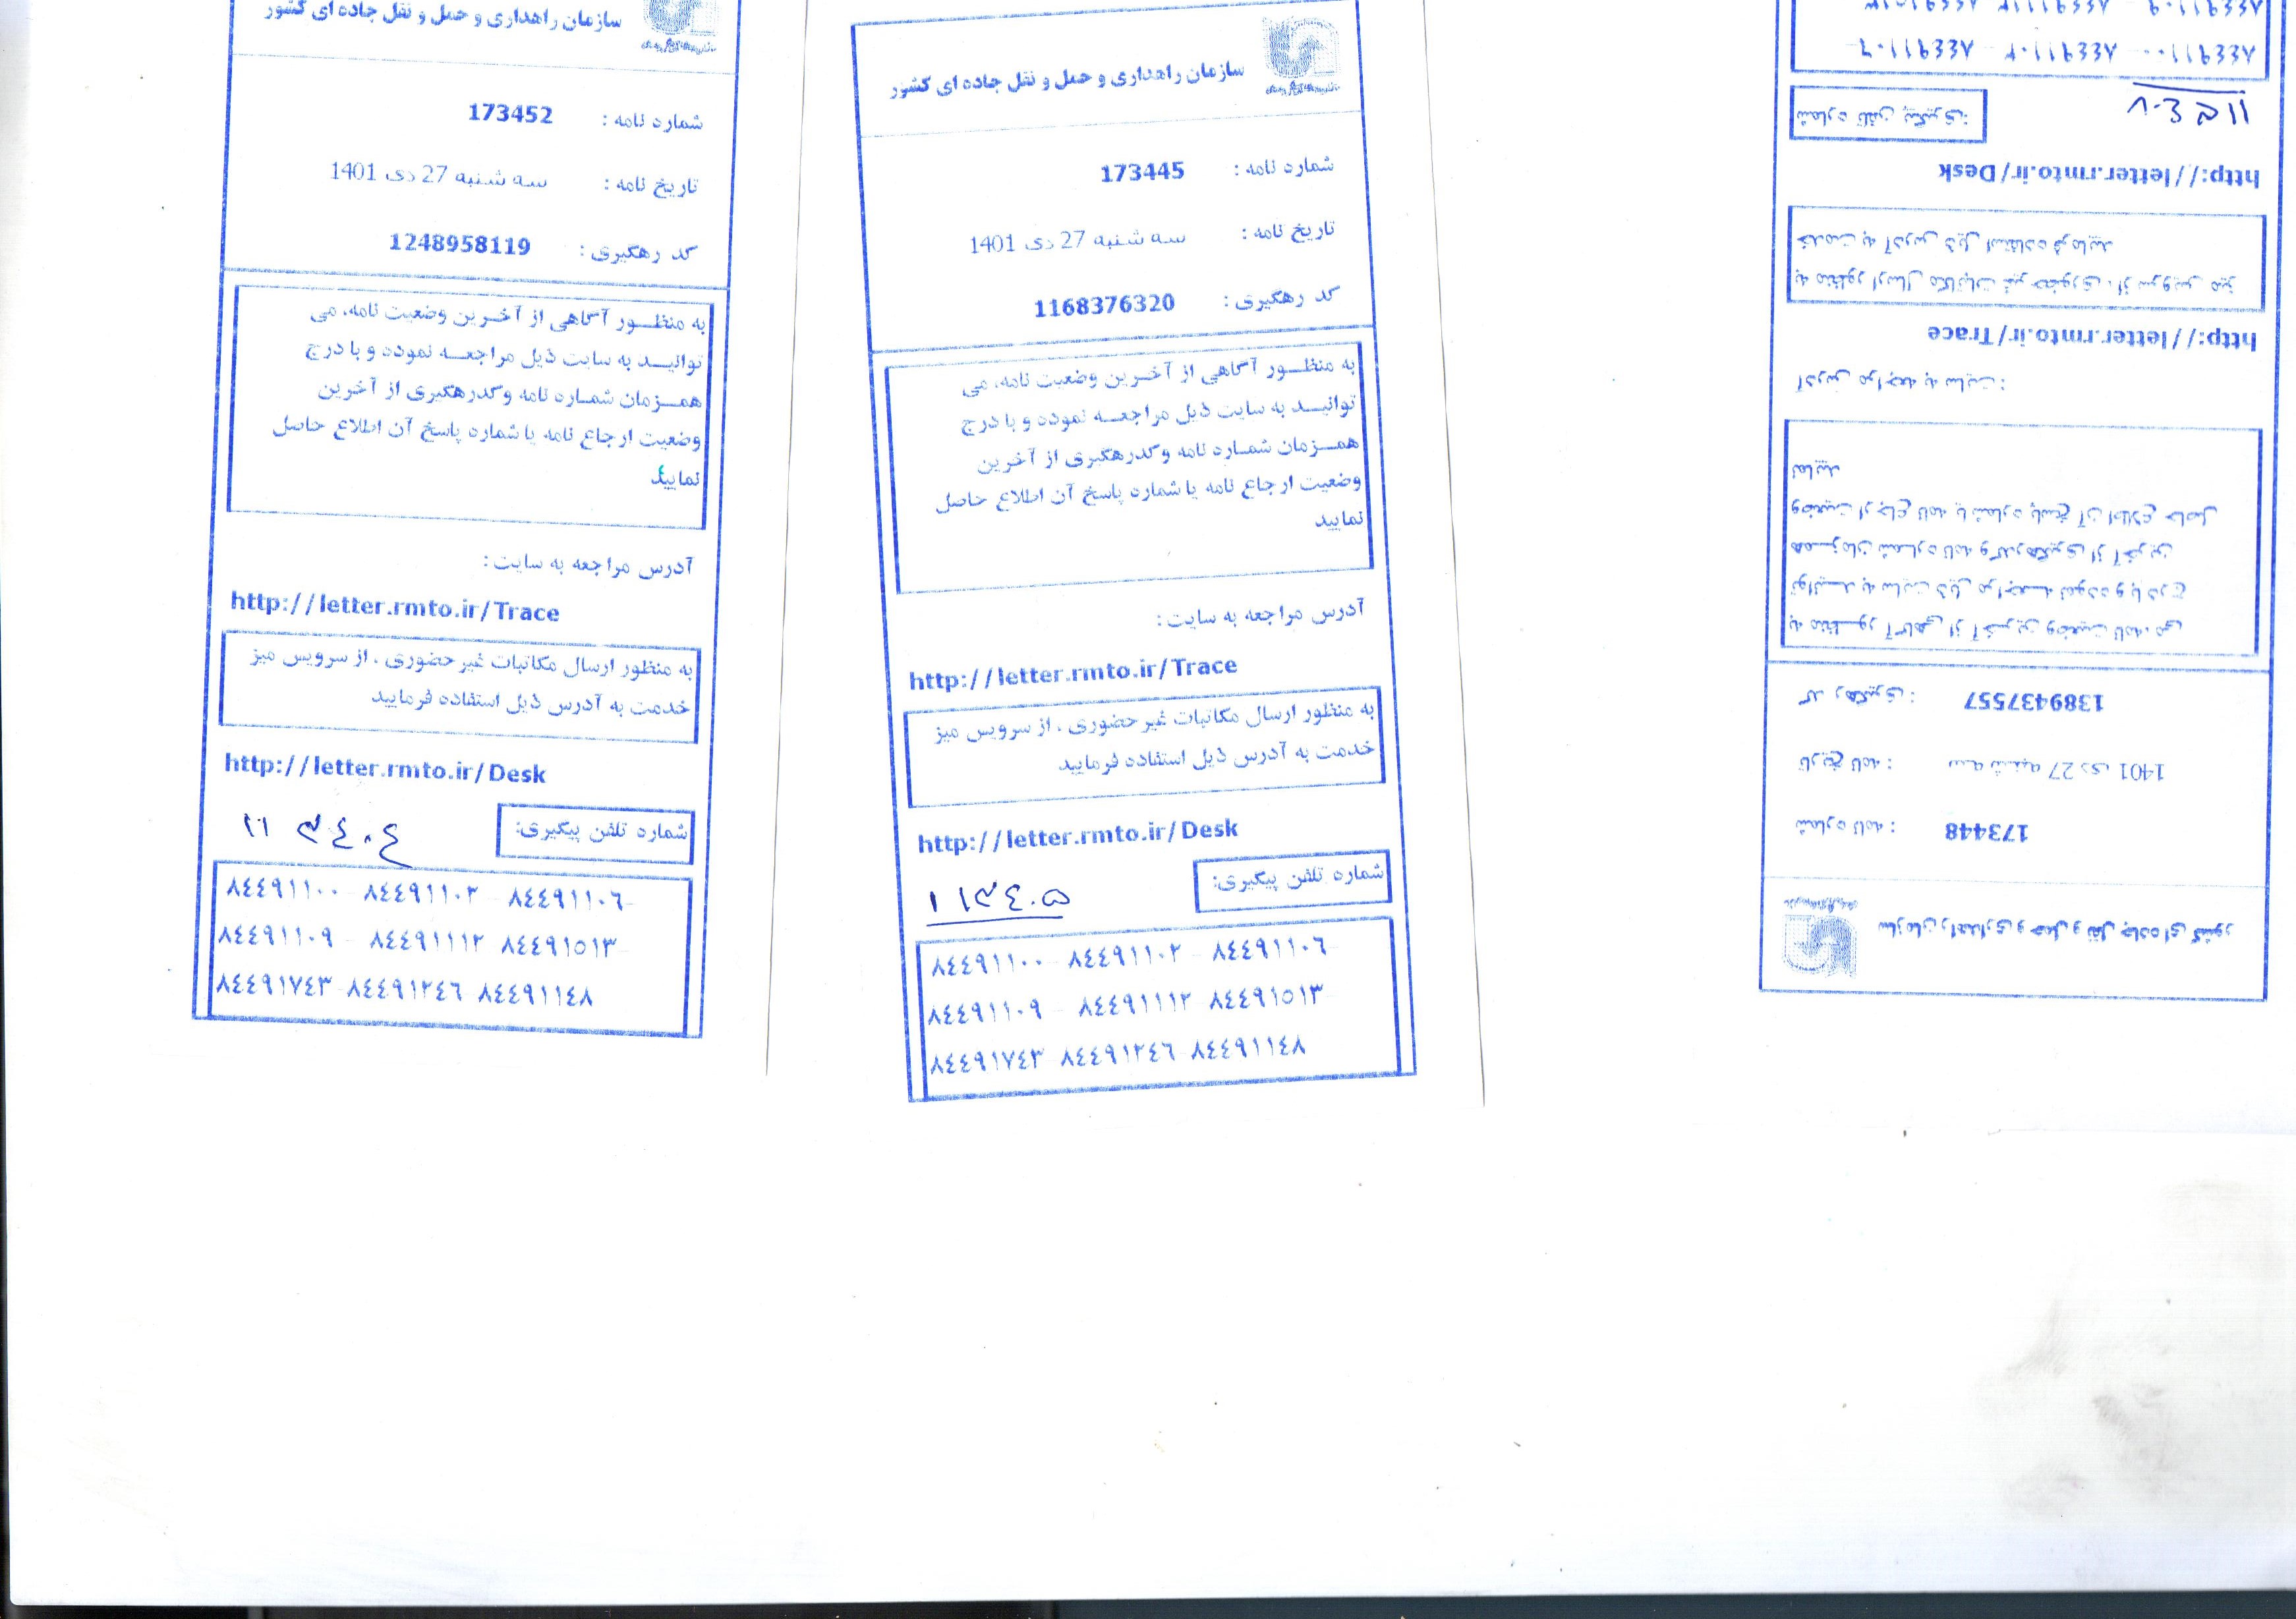 سازمان راهداری و حمل و نقل جاده ای کشور
شماره نامه : 173452
تاریخ نامه : سه شنبه 27 دی 1401
کد رهگیری : 1248958119
به منظـــور آگاهی از آخـرین وضعیت نامه، می
توانیــد به سایت ذیل مراجعــه نموده و با درج
همــزمان شمـاره نامه وکدرهگیری از آخرین
وضعیت ارجاع نامه یا شماره پاسخ آن اطلاع حاصل
نمایید
آدرس مراجعه به سایت:
http://letter.rmto.ir/Trace
به منظور ارسال مکاتبات غیر حضوری ، از سرویس میز
خدمت به آدرس ذیل استفاده فرمایید
http://letter.rmto.ir/Desk
شماره تلفن پیگیری:
٨٤٤٩١١٠٠ - ٨٤٤٩١١٠٢ - ٨٤٤٩١١٠٦-
٨٤٤٩١١٠٩ - ٨٤٤٩١١١٢ ٨٤٤٩١٥١٣-
٨٤٤٩١٧٤٣ ٨٤٤٩١٢٤٦ ٨٤٤٩١١٤٨
سازمان راهداری و حمل و نقل جاده ای کشور
شماره نامه : 173445
تاریخ نامه : سه شنبه 27 دی 1401
کد رهگیری : 1168376320
به منظـــور آگاهی از آخـرین وضعیت نامه، می
توانیــد به سایت ذیل مراجعــه نموده و با درج
همــزمان شمـاره نامه وکدرهگیری از آخرین
وضعیت ارجاع نامه یا شماره پاسخ آن اطلاع حاصل
نمایید
آدرس مراجعه به سایت:
http://letter.rmto.ir/Trace
به منظور ارسال مکاتبات غیر حضوری ، از سرویس میز
خدمت به آدرس ذیل استفاده فرمایید
http://letter.rmto.ir/Desk
شماره تلفن پیگیری:
١١٣٤٠٥
٨٤٤٩١١٠٠ - ٨٤٤٩١١٠٢ - ٨٤٤٩١١٠٦-
٨٤٤٩١١٠٩ - ٨٤٤٩١١١٢ ٨٤٤٩١٥١٣-
٨٤٤٩١٧٤٣ ٨٤٤٩١٢٤٦ ٨٤٤٩١١٤٨
سازمان راهداری و حمل و نقل جاده ای کشور
شماره نامه : 173448
تاریخ نامه : سه شنبه 27 دی 1401
کد رهگیری : 1389437557
به منظـــور آگاهی از آخـرین وضعیت نامه، می
توانیــد به سایت ذیل مراجعــه نموده و با درج
همــزمان شمـاره نامه وکدرهگیری از آخرین
وضعیت ارجاع نامه یا شماره پاسخ آن اطلاع حاصل
نمایید
آدرس مراجعه به سایت:
http://letter.rmto.ir/Trace
به منظور ارسال مکاتبات غیر حضوری ، از سرویس میز
خدمت به آدرس ذیل استفاده فرمایید
http://letter.rmto.ir/Desk
شماره تلفن پیگیری:
٨٤٤٩١١٠٠ - ٨٤٤٩١١٠٢ - ٨٤٤٩١١٠٦-
٨٤٤٩١١٠٩ - ٨٤٤٩١١١٢ ٨٤٤٩١٥١٣